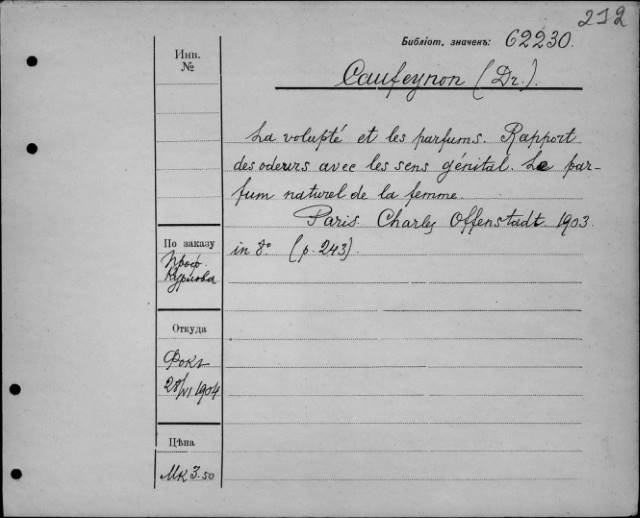 212
Библіот. значекъ: 62230.
Инв.
№
Caufeynon (Dr.).
La volupté et les parfums. Rapport
des odeurs avec les sens génital. Le par-
fum naturel de la femme.
Paris. Charles Offenstadt. 1903.
in 8º (p. 243).
По заказу
Проф.
Курлова
Откуда
Фокъ
28/VI 1904
Цѣна
Mk 3.50